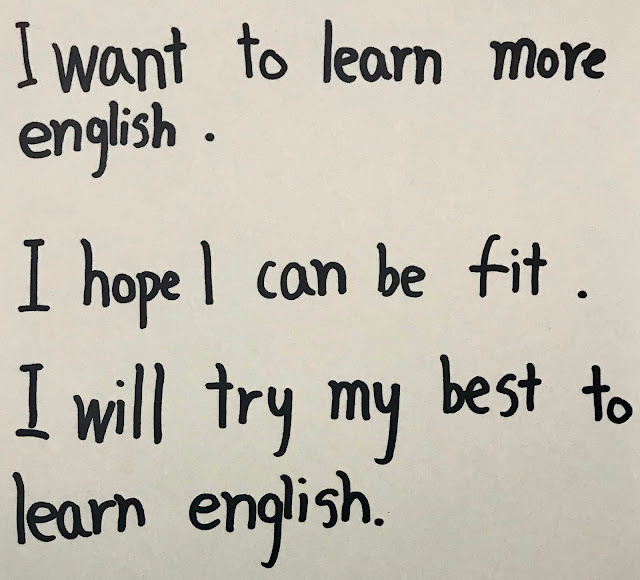 I want to learn more
english .
I hope I can be fit .
I will try my best to
learn english.